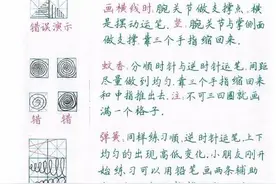 画横线时,腕关节做支撑点,横
是摆动运笔,竖,腕关节与掌侧面
做支撑,靠三个手指缩回来。
错误演示
蚊香,分顺时针与逆时针运笔,间距
尽量做到均匀,靠三个手指缩回来
和中指推出去,注,不可三四圈就画
满一个格子。
错 错
弹簧,同样练习顺,逆时针运笔,上下
均匀的出现高低变化,小朋友刚开
始练习可以用铅笔画两条辅助